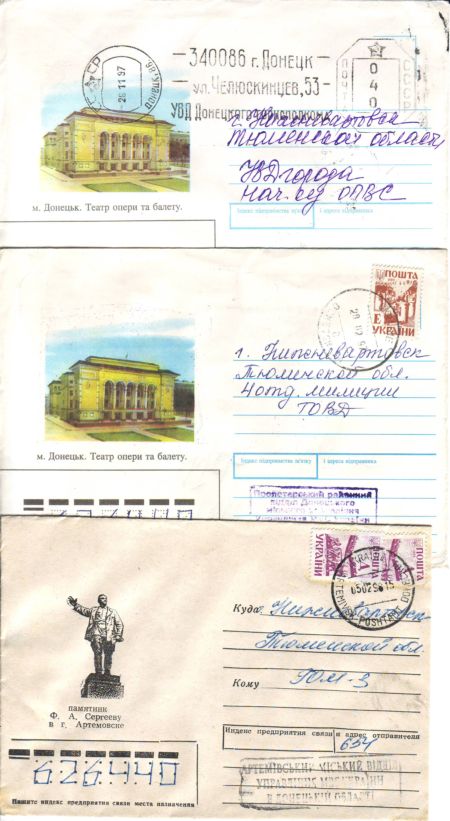 28 11 97
340086 г. Донецк
ул. Челюскинцев, 53
УВД Донецкого
040
г. Нижневартовска
Тюменской области,
УВД города
нач-ку ОПВС
м. Донецьк. Театр опери та балету.
Індекс підприємства зв'язку і адреса відправника
ПОШТА
УКРАЇНИ
г. Нижневартовск
Тюменской обл.
4 отд. милиции
ГОВД
м. Донецьк. Театр опери та балету.
Індекс підприємства зв'язку і адреса відправника
Пролетарський районний
відділ Донецького
ПОШТА
УКРАЇНИ
ПОШТА
050298 15
POSHTAMT
Куда Нижневартовск
Тюменской обл.
Кому ГОМ-3
памятник
Ф. А. Сергееву
в г. Артемовске
Индекс предприятия связи и адрес отправителя
634
626440
Пишите индекс предприятия связи места назначения
АРТЕМІВСЬКИЙ МІСЬКИЙ ВІДДІЛ
УПРАВЛІННЯ МВС УКРАЇНИ
В ДОНЕЦЬКІЙ ОБЛАСТІ